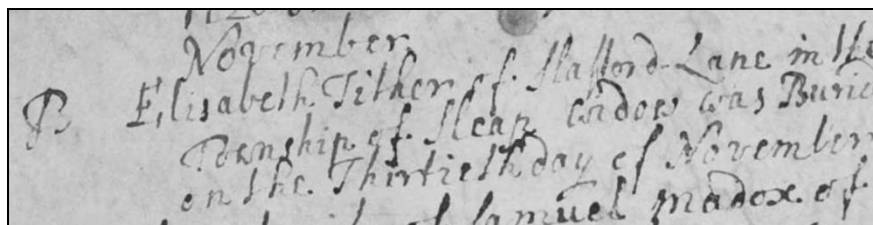 November
B Elisabeth Tither of Stafford Lane in the
Township of Sleap widow was Burie
on the Thirtieth day of November
of Samuel Madox of